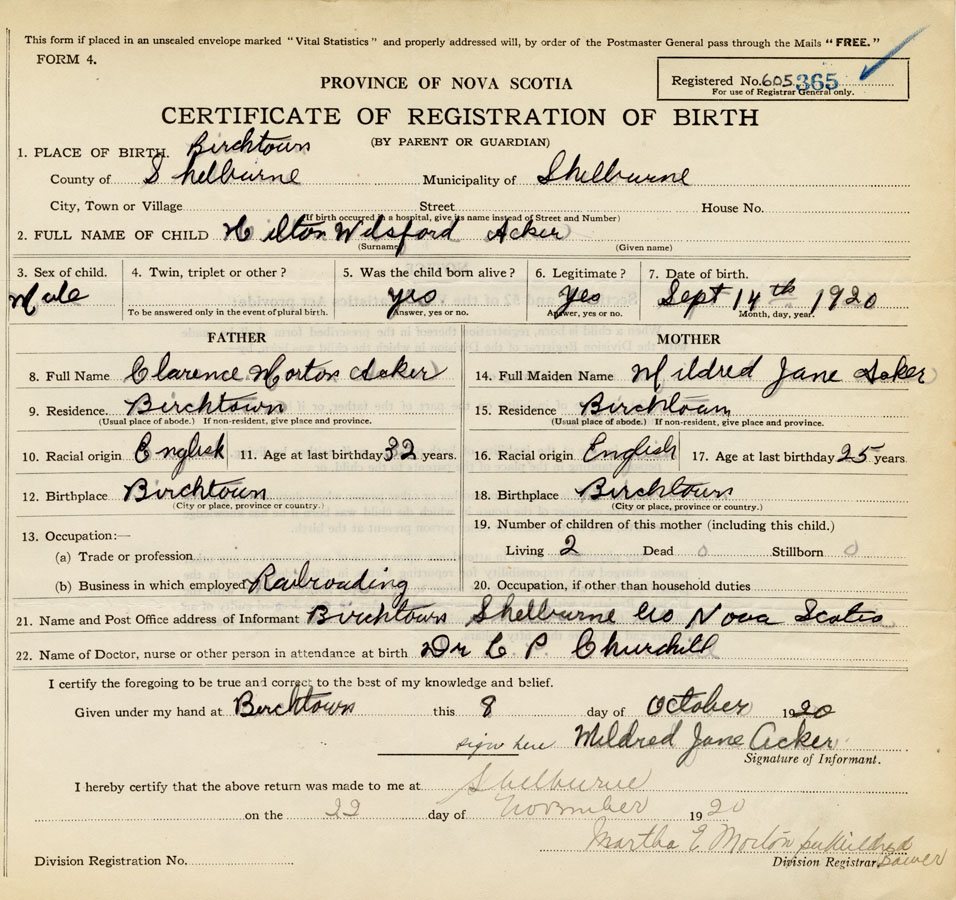 This form if placed in an unsealed envelope marked "Vital Statistics" and properly addressed will, by order of the Postmaster General pass through the Mails "FREE."
FORM 4.
Registered No. 605365
For use of Registrar General only.
PROVINCE OF NOVA SCOTIA
CERTIFICATE OF REGISTRATION OF BIRTH
(BY PARENT OR GUARDIAN)
1. PLACE OF BIRTH. Birchtown
County of Shelburne Municipality of Shelburne
City, Town or Village Street House No.
(If birth occurred in a hospital, give its name instead of Street and Number)
2. FULL NAME OF CHILD Hilton Acker
(Surname) (Given name)
3. Sex of child. 4. Twin, triplet or other? 5. Was the child born alive? 6. Legitimate? 7. Date of birth.
Male yes yes Sept 14th 1920
To be answered only in the event of plural birth. Answer, yes or no. Answer, yes or no. Month, day, year.
FATHER MOTHER
8. Full Name Clarence Morton Acker 14. Full Maiden Name Mildred Jane Acker
9. Residence. Birchtown 15. Residence Birchtown
(Usual place of abode.) If non-resident, give place and province. (Usual place of abode.) If non-resident, give place and province.
10. Racial origin English 11. Age at last birthday 32 years. 16. Racial origin English 17. Age at last birthday 25 years.
12. Birthplace Birchtown 18. Birthplace Birchtown
(City or place, province or country.) (City or place, province or country.)
13. Occupation:— 19. Number of children of this mother (including this child.)
(a) Trade or profession Living 2 Dead 0 Stillborn 0
(b) Business in which employed Railroading 20. Occupation, if other than household duties
21. Name and Post Office address of Informant Birchtown Shelburne Co Nova Scotia
22. Name of Doctor, nurse or other person in attendance at birth Dr L P Churchill
I certify the foregoing to be true and correct to the best of my knowledge and belief.
Given under my hand at Birchtown this 8 day of October 1920
sign here Mildred Jane Acker
Signature of Informant.
I hereby certify that the above return was made to me at Shelburne
on the 22 day of November 1920
Martha E Morton per Mildred Bower
Division Registration No. Division Registrar.